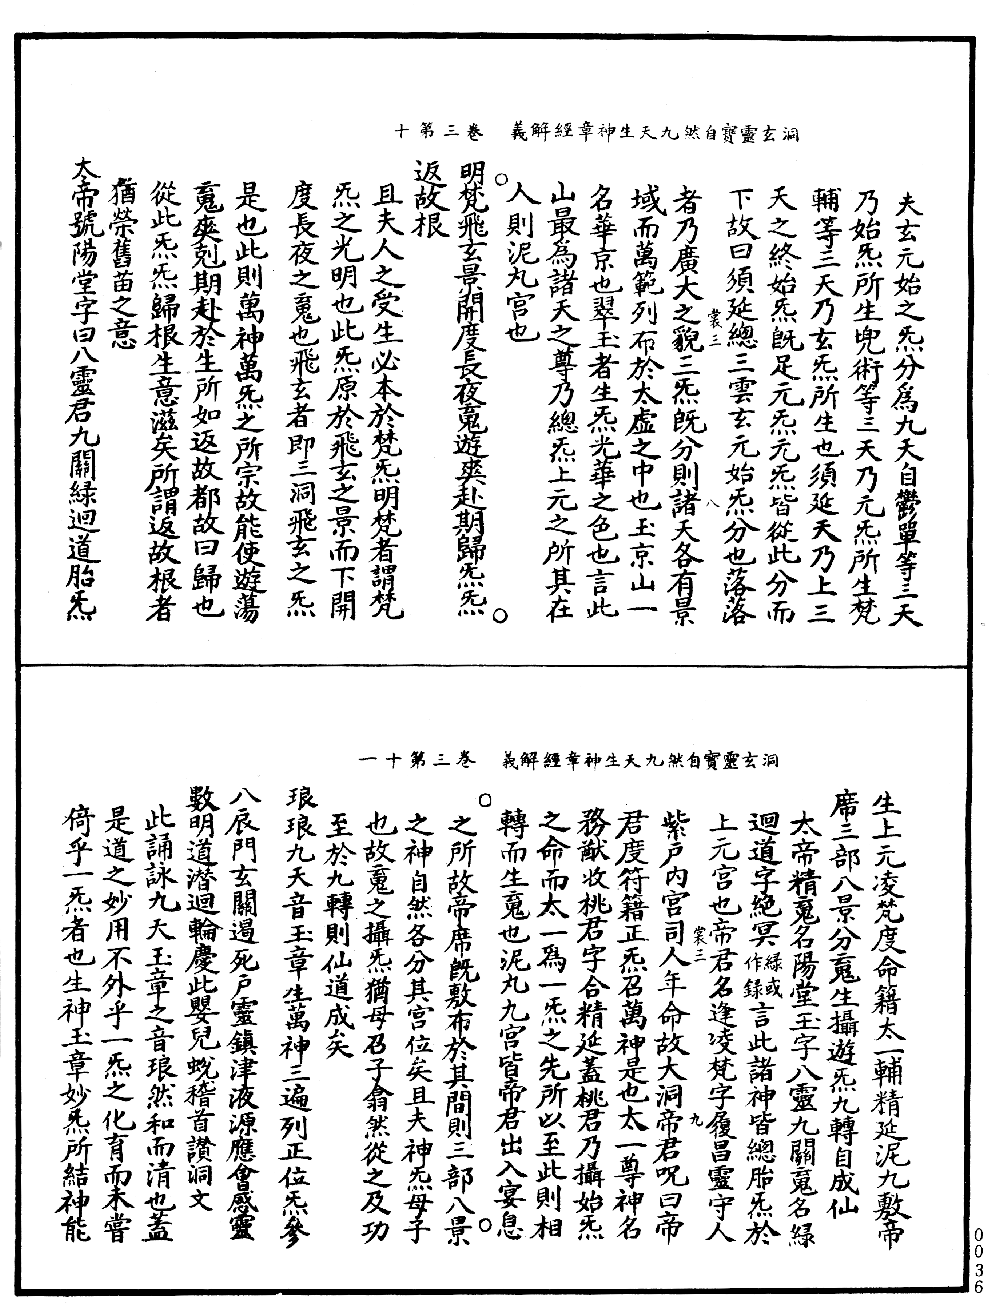 洞玄靈寶自然九天生神章經解義　卷三第十
夫玄元始之炁分為九天自鬱單等三天
乃始炁所生兜術等三天乃元炁所生梵
輔等三天乃玄炁所生也須延天乃上三
天之終始炁既足元炁元炁皆從此分而
下故曰須延總三雲玄元始炁分也落落
裳三　八
者乃廣大之貌三炁既分則諸天各有景
域而萬範列布於太虛之中也玉京山一
名華京也翠玉者生炁光華之色也言此
山最為諸天之尊乃總炁上元之所其在
人則泥丸宮也
明梵飛玄景開度長夜䰟遊爽赴期歸炁炁
返故根
且夫人之受生必本於梵炁明梵者謂梵
炁之光明也此炁原於飛玄之景而下開
度長夜之䰟也飛玄者即三洞飛玄之炁
是也此則萬神萬炁之所宗故能使遊蕩
䰟爽剋期赴於生所如返故都故曰歸也
從此炁炁歸根生意滋矣所謂返故根者
猶榮舊苗之意
太帝號陽堂字曰八靈君九關綠迴道胎炁
洞玄靈寶自然九天生神章經解義　卷三第十一
生上元凌梵度命籍太一輔精延泥九敷帝
席三部八景分䰟生攝遊炁九轉自成仙
太帝精䰟名陽堂玉字八靈九關䰟名綠
迴道字絕冥綠或作錄言此諸神皆總胎炁於
上元宮也帝君名逢凌梵字履昌靈守人
裳三　九
紫戶內宮司人年命故大洞帝君呪曰帝
君度符籍正炁召萬神是也太一尊神名
務猷收桃君字合精延蓋桃君乃攝始炁
之命而太一為一炁之先所以至此則相
轉而生䰟也泥丸九宮皆帝君出入宴息
之所故帝席既敷布於其間則三部八景
之神自然各分其宮位矣且夫神炁母子
也故䰟之攝炁猶母召子翕然從之及功
至於九轉則仙道成矣
琅琅九天音玉章生萬神三遍列正位炁參
八辰門玄關遏死戶靈鎮津液源應會感靈
數明道潛迴輪慶此嬰兒蛻稽首讚洞文
此誦詠九天玉章之音琅然和而清也蓋
是道之妙用不外乎一炁之化育而未嘗
倚乎一炁者也生神玉章妙炁所結神能
0036